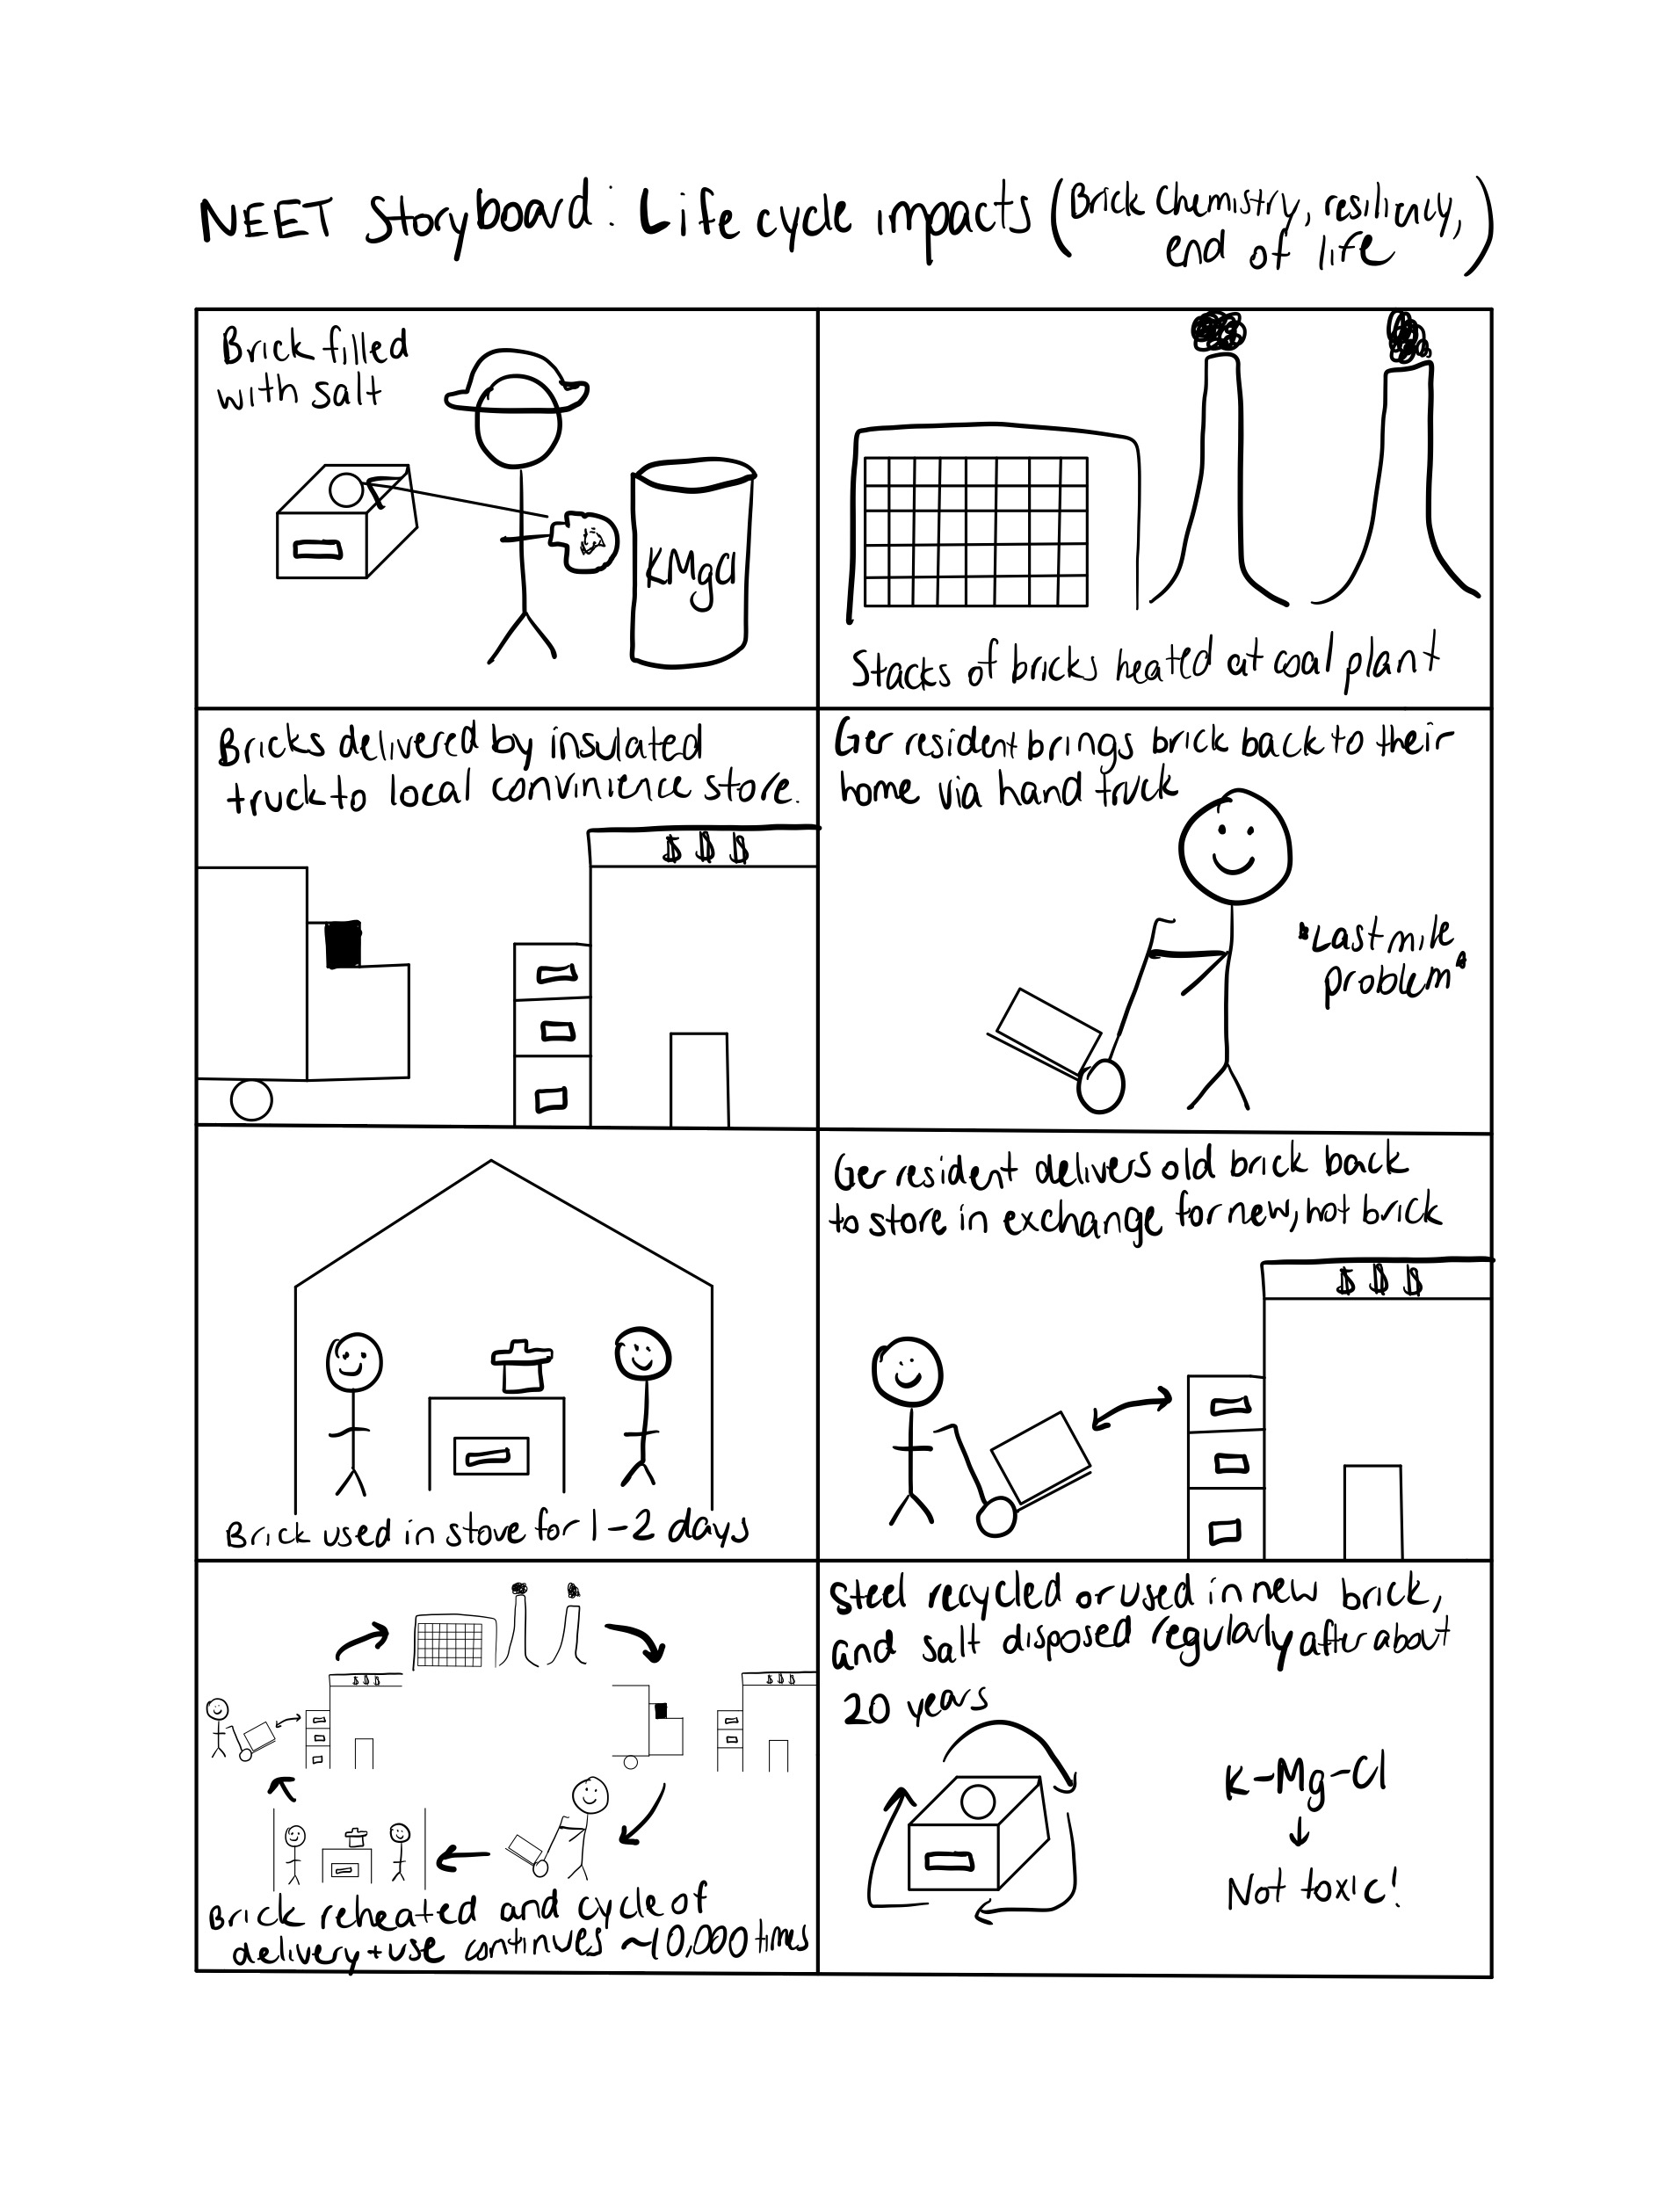 NEET Storyboard: Life cycle impacts (Brick Chemistry, resiliency,
end of life)
Brick filled
with salt
KMgCl
Stacks of bricks heated at coal plant
Bricks delivered by insulated
truck to local convinience store.
$ $ $
Ger resident brings brick back to their
home via hand truck
"Last mile
problem"
Brick used in stove for 1-2 days
Ger resident delivers old brick back
to store in exchange for new, hot brick
$ $ $
$ $ $
$ $ $
Brick reheated and cycle of
delivery + use continues ~10,000 times
Steel recycled or used in new brick,
and salt disposed regularly after about
20 years
K-Mg-Cl
↓
Not toxic!